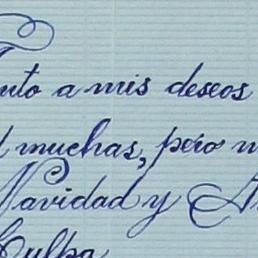 nto a mis deseos
muchas, pero
Navidad y A
Culpa